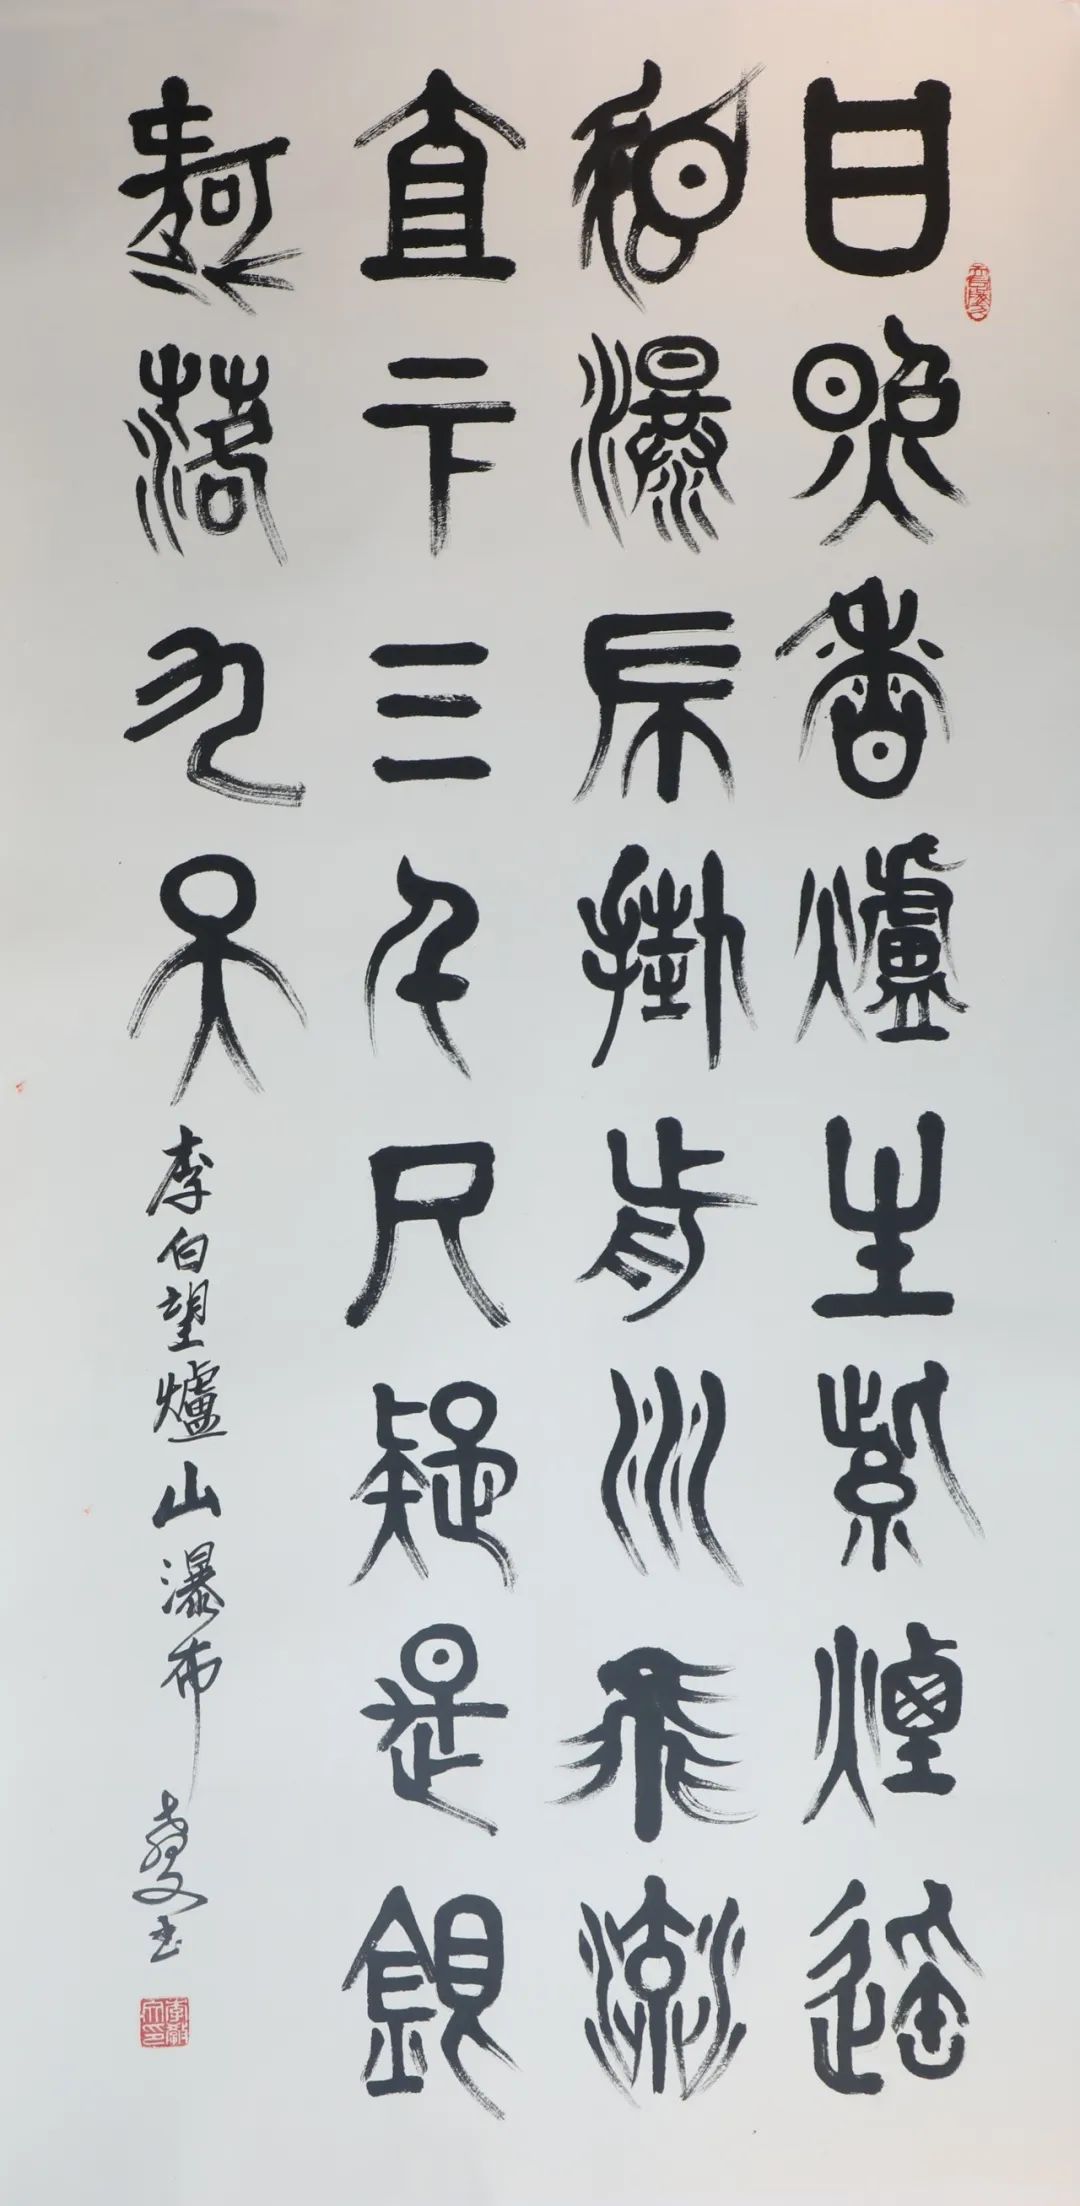 日照香爐生紫煙遙
看瀑布掛前川飛流
直下三千尺疑是銀
河落九天
李白望爐山瀑布 教文书
李教文印